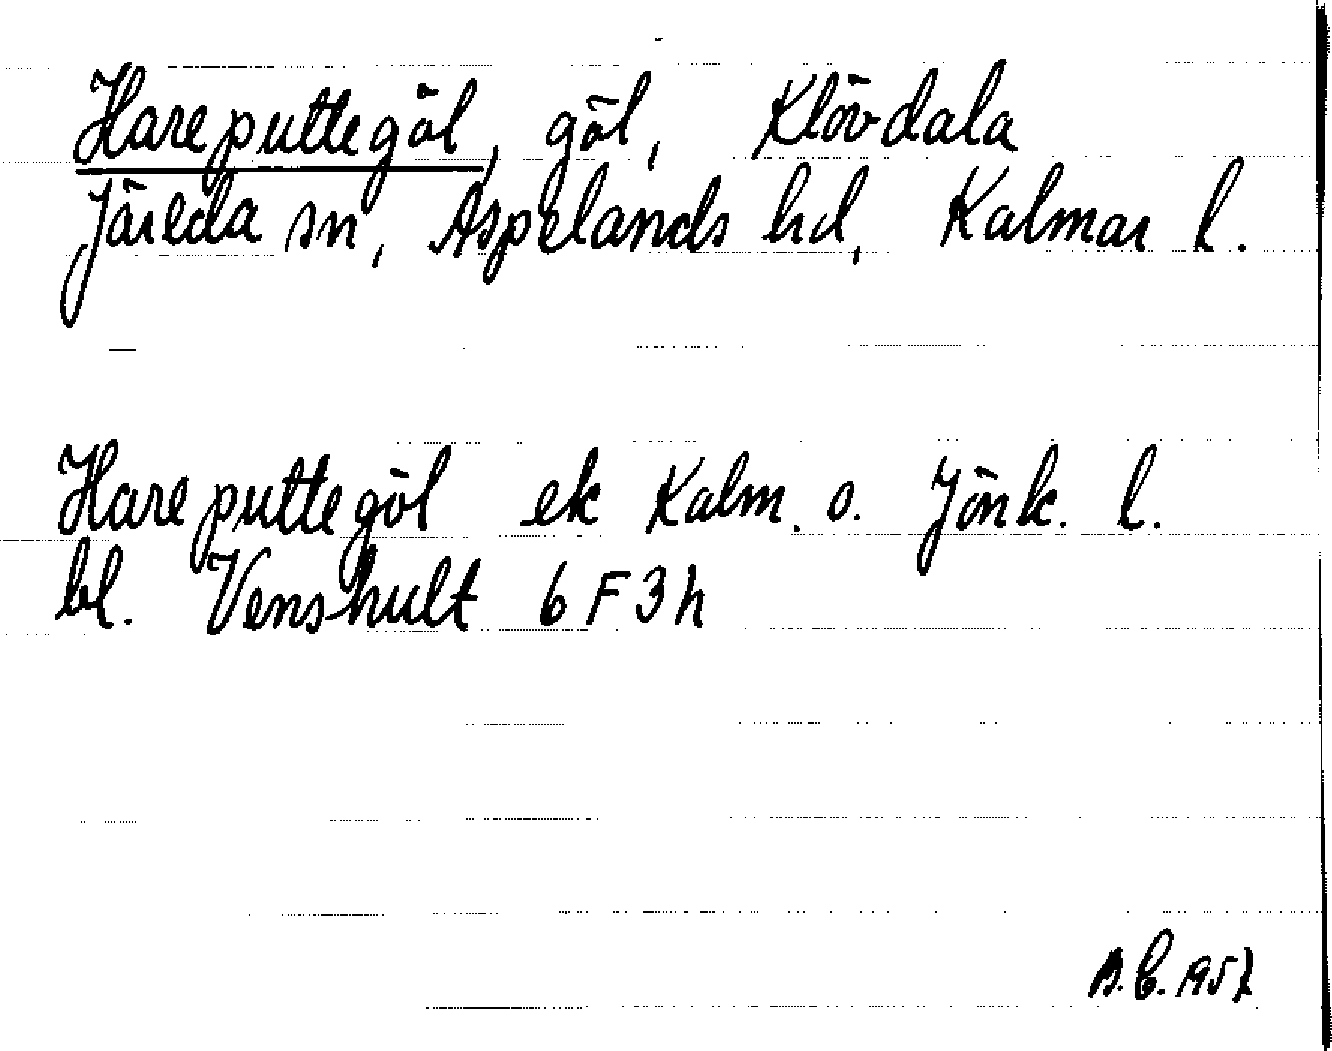 Hareputtegöl, göl, Klövdala
Järeda sn, Aspelands hd, Kalmar l.
Hareputtegöl ek Kalm. o. Jönk. l.
bl. Venshult 6F3h
B.E. 1957